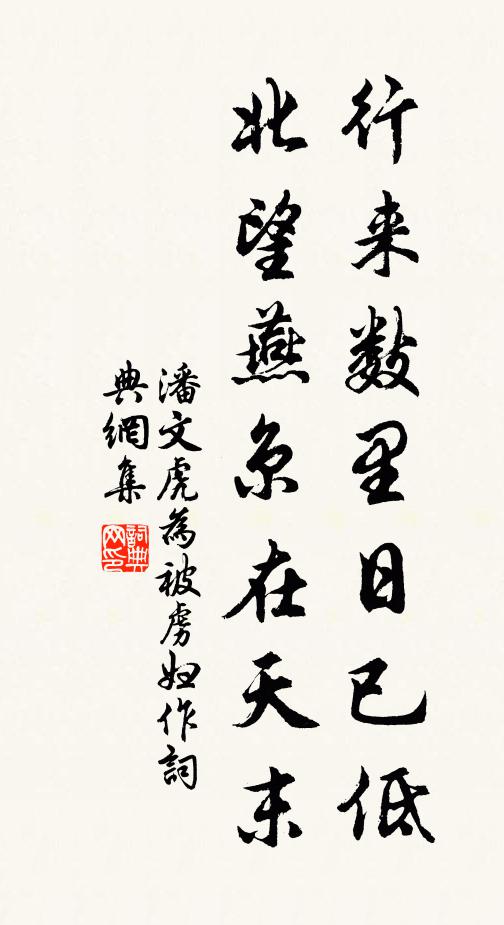 行来数里日已低
北望燕京在天末
潘文虎為被虜妇作詞
典網集
詞典网印